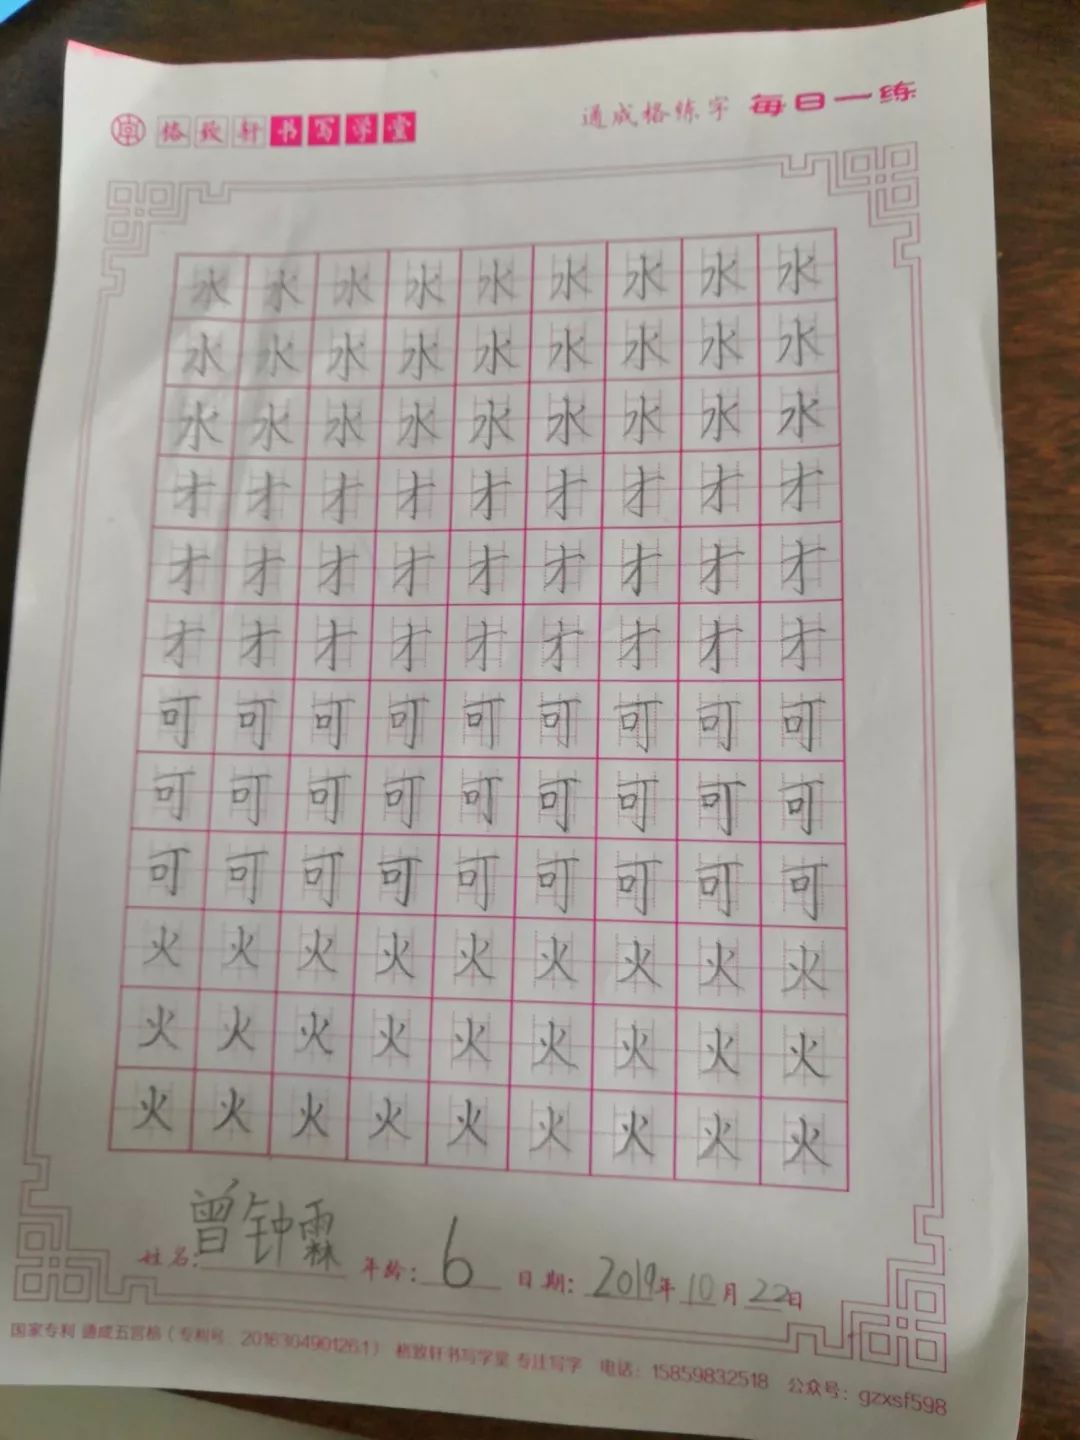 格致轩书写学堂
通成格练字 每日一练
水水水水水水水水水
水水水水水水水水水
水水水水水水水水水
才才才才才才才才才
才才才才才才才才才
才才才才才才才才才
可可可可可可可可可
可可可可可可可可可
可可可可可可可可可
火火火火火火火火火
火火火火火火火火火
火火火火火火火火火
姓名:曾钟霖 年龄:6 日期:2019年10月22日
国家专利 通成五宫格(专利号 201630490126.1) 格致轩书写学堂 专注写字 电话:15859832518 公众号:gzxsf598